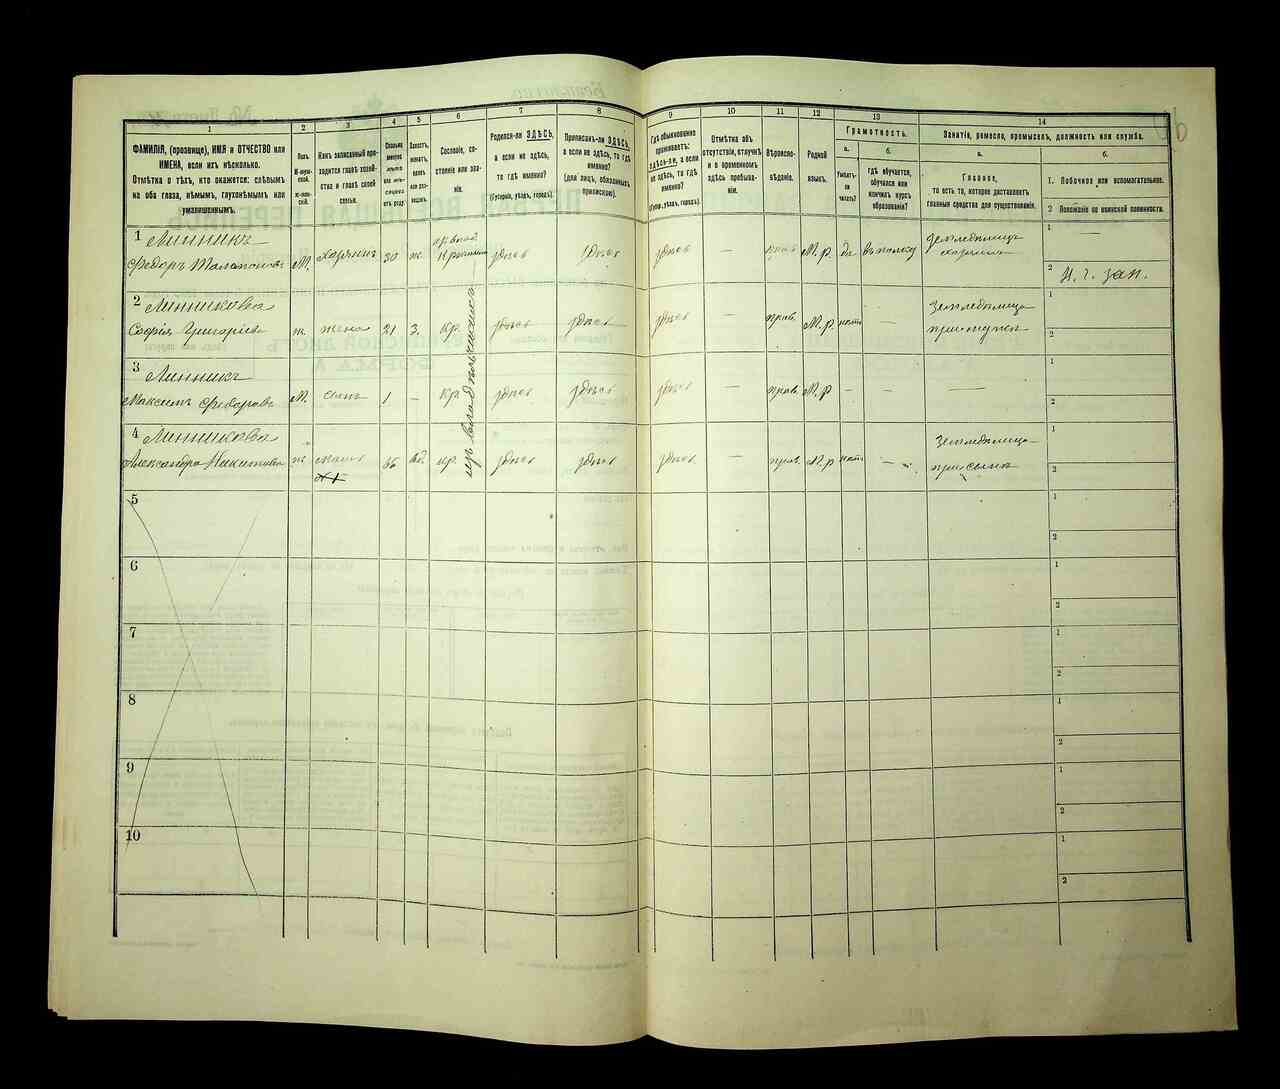 1
2
3
4
5
6
7
8
9
10
11
12
13
14
ФАМИЛІЯ, (прозвище), ИМЯ и ОТЧЕСТВО или
ИМЕНА, если ихъ нѣсколько.
Отмѣтка о тѣхъ, кто окажется: слѣпымъ
на оба глаза, нѣмымъ, глухонѣмымъ или
умалишеннымъ.
Полъ.
М-муж-
ской.
Ж-жен-
скій.
Какъ записанный при-
ходится главѣ хозяй-
ства и главѣ своей
семьи.
Сословіе, со-
стояніе или зва-
ніе.
Родился-ли ЗДѢСЬ,
а если не здѣсь,
то гдѣ именно?
(Губернія, уѣздъ, городъ).
Приписанъ-ли ЗДѢСЬ,
а если не здѣсь, то гдѣ
именно?
(для лицъ, обязанныхъ
припискою).
Гдѣ обыкновенно
проживаетъ:
ЗДѢСЬ-ЛИ, а если
не здѣсь, то гдѣ
именно?
(Губер., уѣздъ, городъ).
Отмѣтка объ
отсутствіи, отлучкѣ
и о временномъ
здѣсь пребыва-
ніи.
Вѣроиспо-
вѣданіе.
Родной
языкъ.
Грамотность.
а.
б.
Умѣетъ-
ли
читать?
гдѣ обучается,
обучался или
кончилъ курсъ
образованія?
Занятія, ремесло, промыселъ, должность или служба.
а.
б.
Главное,
то есть то, которое доставляетъ
главныя средства для существованія.
1. Побочное или вспомогательное.
2 Положеніе по воинской повинности.
1 Линникъ
Федоръ М. хозяинъ 30 ж. здѣсь здѣсь здѣсь — М.р. да въ полку
Земледѣлецъ
хозяинъ
1 —
2 Н. ч. зап.
2 Линникова
Софія Григоріева ж. жена 21 З. Кр. здѣсь здѣсь здѣсь — прав. М.р. нѣтъ —
Земледѣлица
при мужѣ
1
2
3 Линникъ
Максимъ Федоровъ М. сынъ 1 — Кр. здѣсь здѣсь здѣсь — прав. М.р — — —
1
2
4 Линникова
Александра Никитина ж. мать вд. кр. здѣсь здѣсь здѣсь — прав. М.р нѣтъ —
Земледѣлица
при сынѣ
1
2
5
1
2
6
1
2
7
1
2
8
1
2
9
1
2
10
1
2